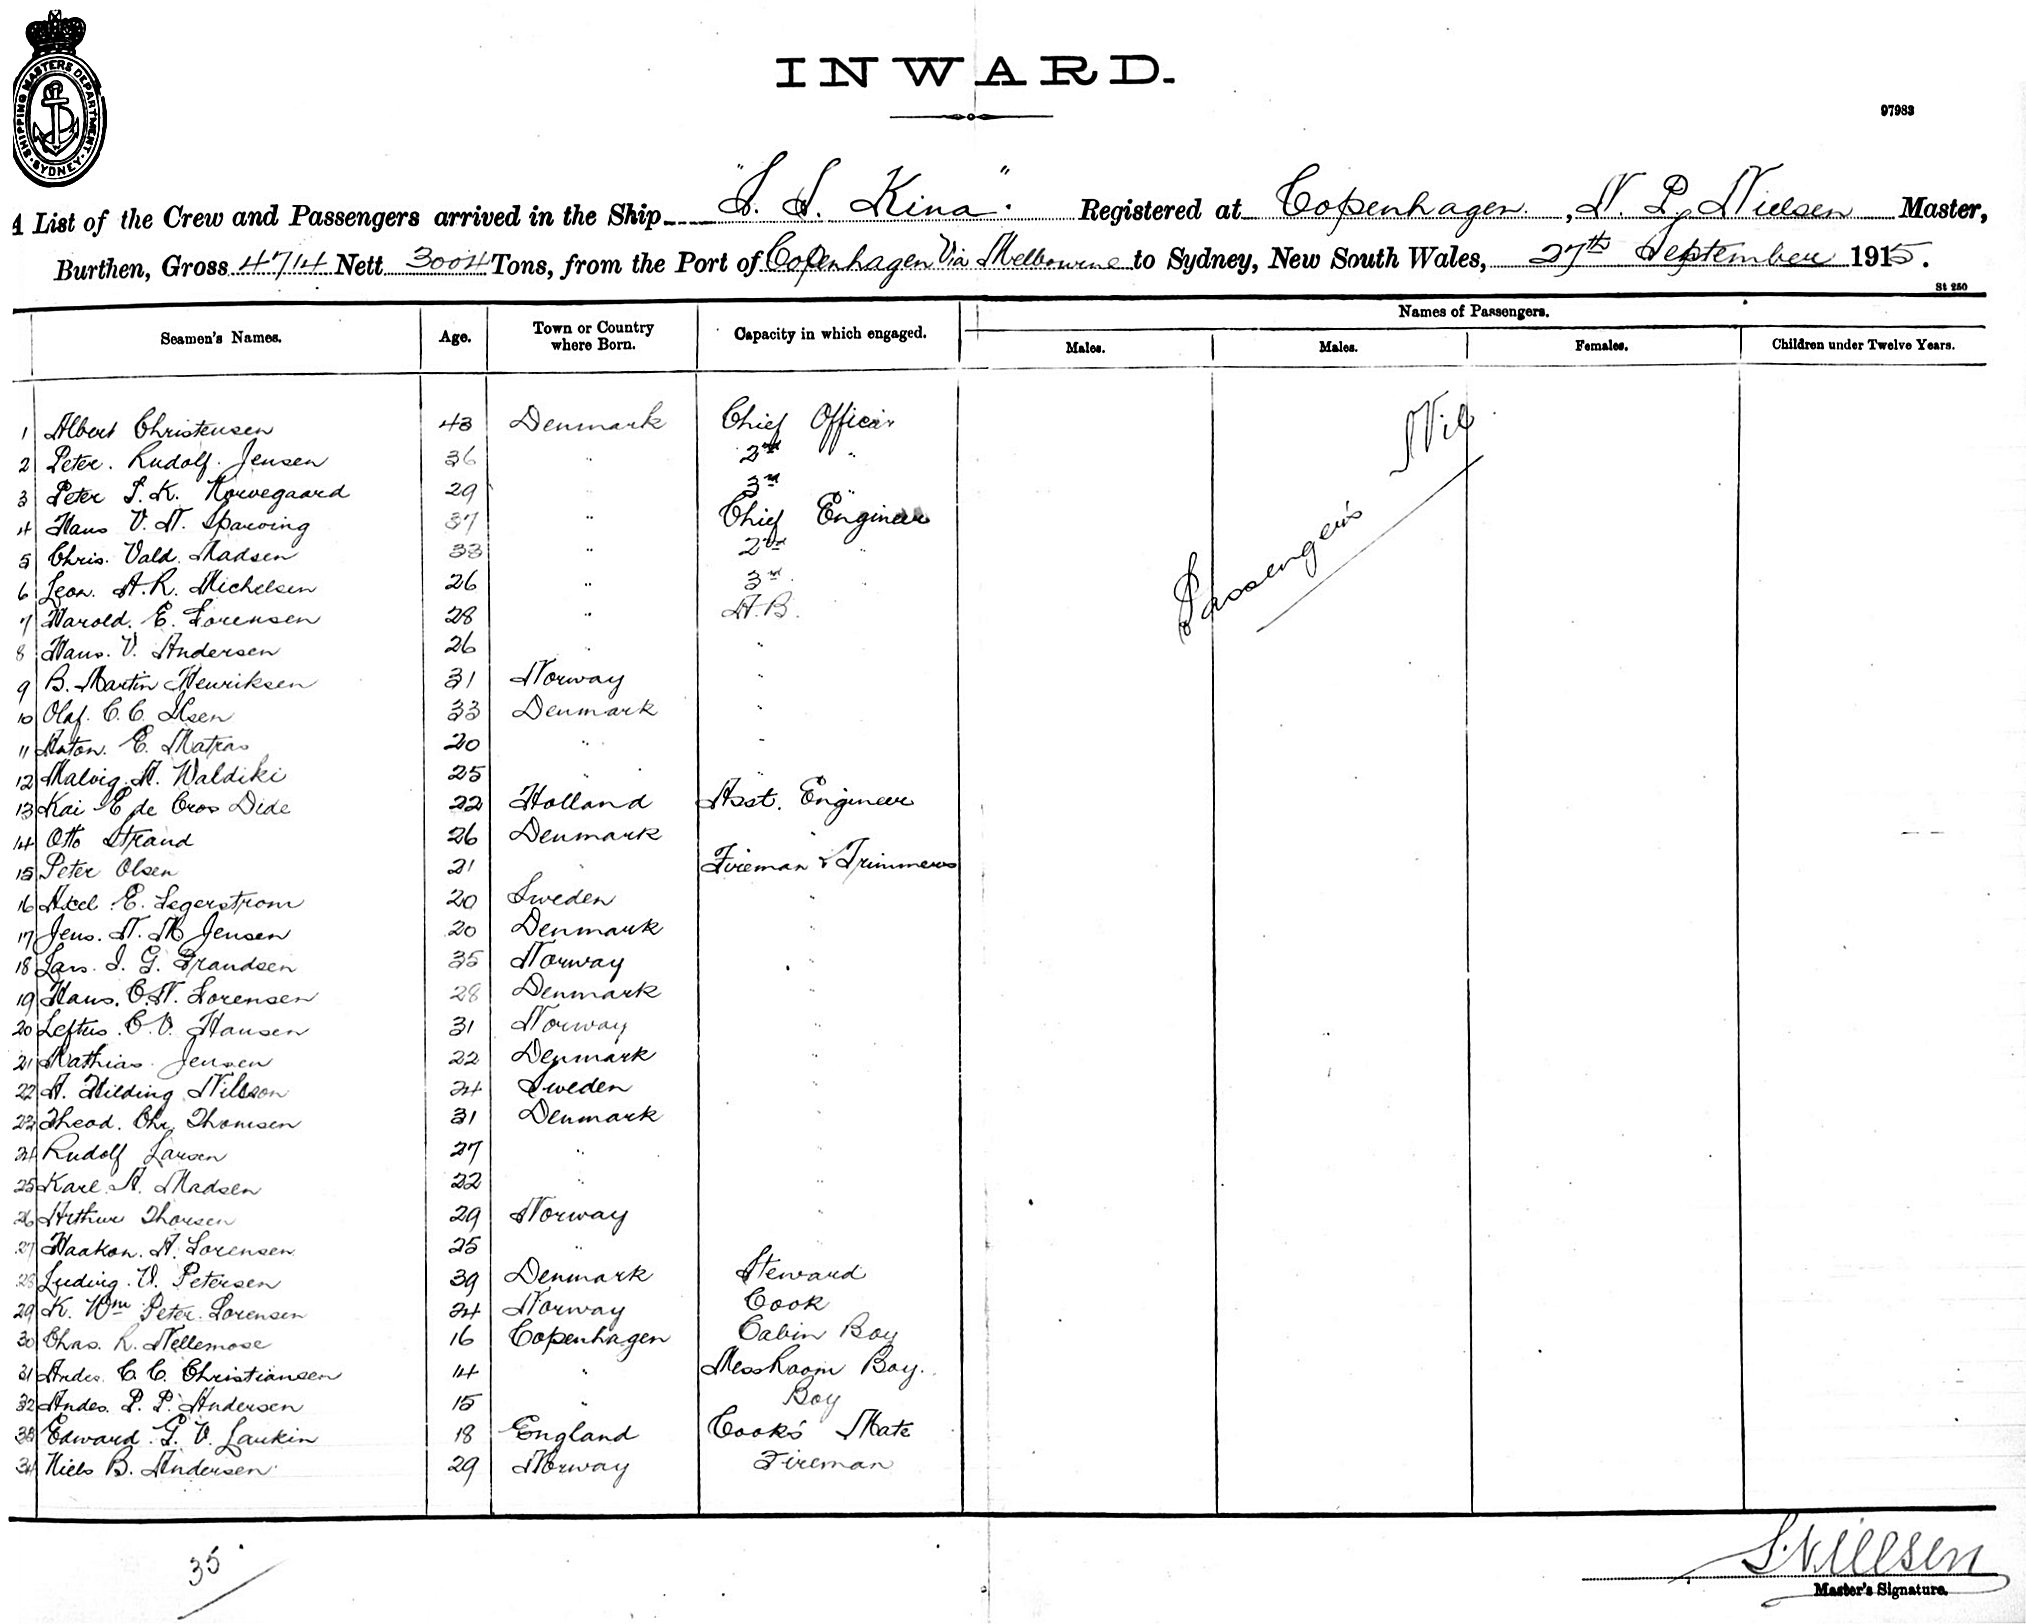 SHIPPING MASTERS DEPARTMENT · SYDNEY ·
INWARD.
97983
A List of the Crew and Passengers arrived in the Ship "S. S. Kina". Registered at Copenhagen, N. P. Nielsen Master,
Burthen, Gross 4714 Nett 3004 Tons, from the Port of Copenhagen Via Melbourne to Sydney, New South Wales, 27th September 1915.
St 250
Names of Passengers.
Seamen's Names. Age. Town or Country where Born. Capacity in which engaged. Males. Males. Females. Children under Twelve Years.
1 Albert Christensen 43 Denmark Chief Officer
2 Peter. Rudolf. Jensen 36 " 2nd "
3 Peter S. K. Norvegaard 29 " 3rd "
4 Hans V. N. Sparving 37 " Chief Engineer
5 Chris. Vald. Madsen 33 " 2nd "
6 Leon. A. R. Michelsen 26 " 3rd "
7 Harold. E. Sorensen 28 " A.B.
8 Hans. V. Andersen 26 " "
9 B. Martin Henriksen 31 Norway "
10 Olaf. C. C. Ilsen 33 Denmark "
11 Anton. E. Matras 20 " "
12 Malvig. A. Waldiki 25 " "
13 Kai E de Cros Dide 22 Holland Asst. Engineer
14 Otto Strand 26 Denmark "
15 Peter Olsen 21 " Fireman & Trimmers
16 Axel. E. Segerstrom 20 Sweden "
17 Jens. N. M Jensen 20 Denmark "
18 Lars. I. G. Frandsen 35 Norway "
19 Hans. C. N. Sorensen 28 Denmark "
20 Leftus. C. V. Hansen 31 Norway "
21 Mathias Jensen 22 Denmark "
22 A. Hilding Nilsson 24 Sweden "
23 Theod. Chr. Thomsen 31 Denmark "
24 Rudolf Larsen 27 " "
25 Karl. A. Madsen 22 " "
26 Arthur Thorsen 29 Norway "
27 Haakon. A. Sorensen 25 " "
28 Ludvig. V. Petersen 39 Denmark Steward
29 K. Wm Peter. Sorensen 24 Norway Cook
30 Chas. R. Nellemose 16 Copenhagen Cabin Boy
31 Andes. C. C. Christiansen 14 " Messroom Boy.
32 Andes. P. P. Andersen 15 " Boy
33 Edward. G. V. Larkin 18 England Cook's Mate
34 Niels B. Andersen 29 Norway Fireman
Passengers Nil.
35
S. Nielsen
Master's Signature.